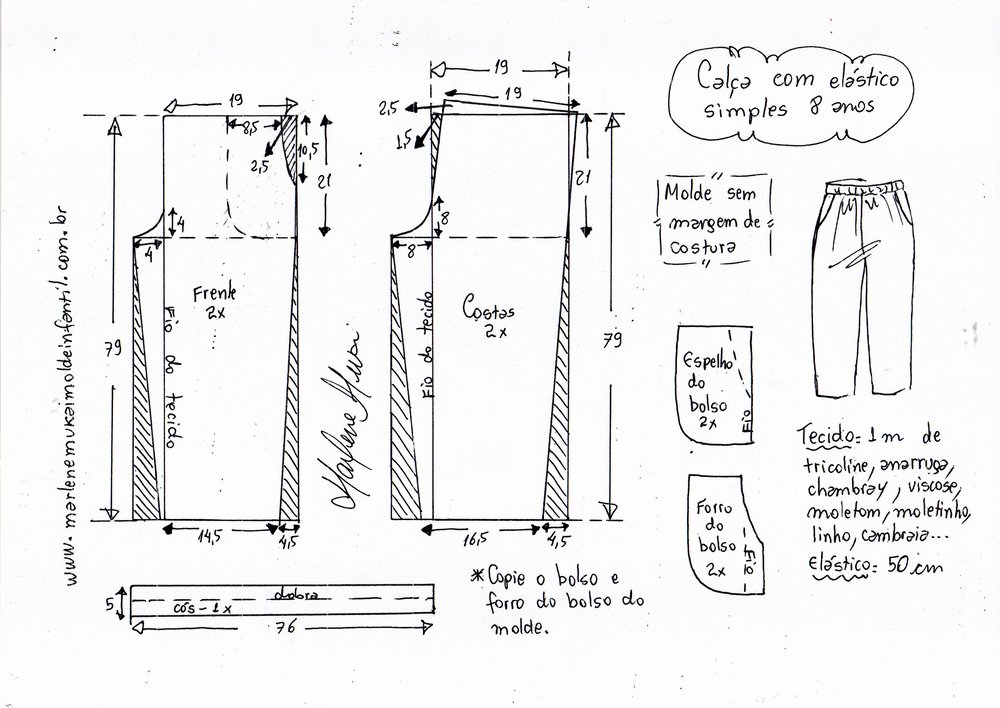 Calça com elástico
simples 8 anos
Molde sem
margem de
costura
www.marlenemukaimoldeinfantil.com.br
19
8,5
2,5
10,5
21
4
4
79
Frente
2x
Fio do tecido
14,5
4,5
Marlene Mukai
19
19
2,5
1,5
21
8
8
79
Costas
2x
Fio do tecido
16,5
4,5
Espelho
do
bolso
2x
Fio
Forro
do
bolso
2x
Fio
Tecido: 1m de
tricoline, anarruga,
chambray, viscose,
moletom, moletinho,
linho, cambraia...
Elástico: 50 cm
5
dobra
cós - 1x
76
* Copie o bolso e
forro do bolso do
molde.